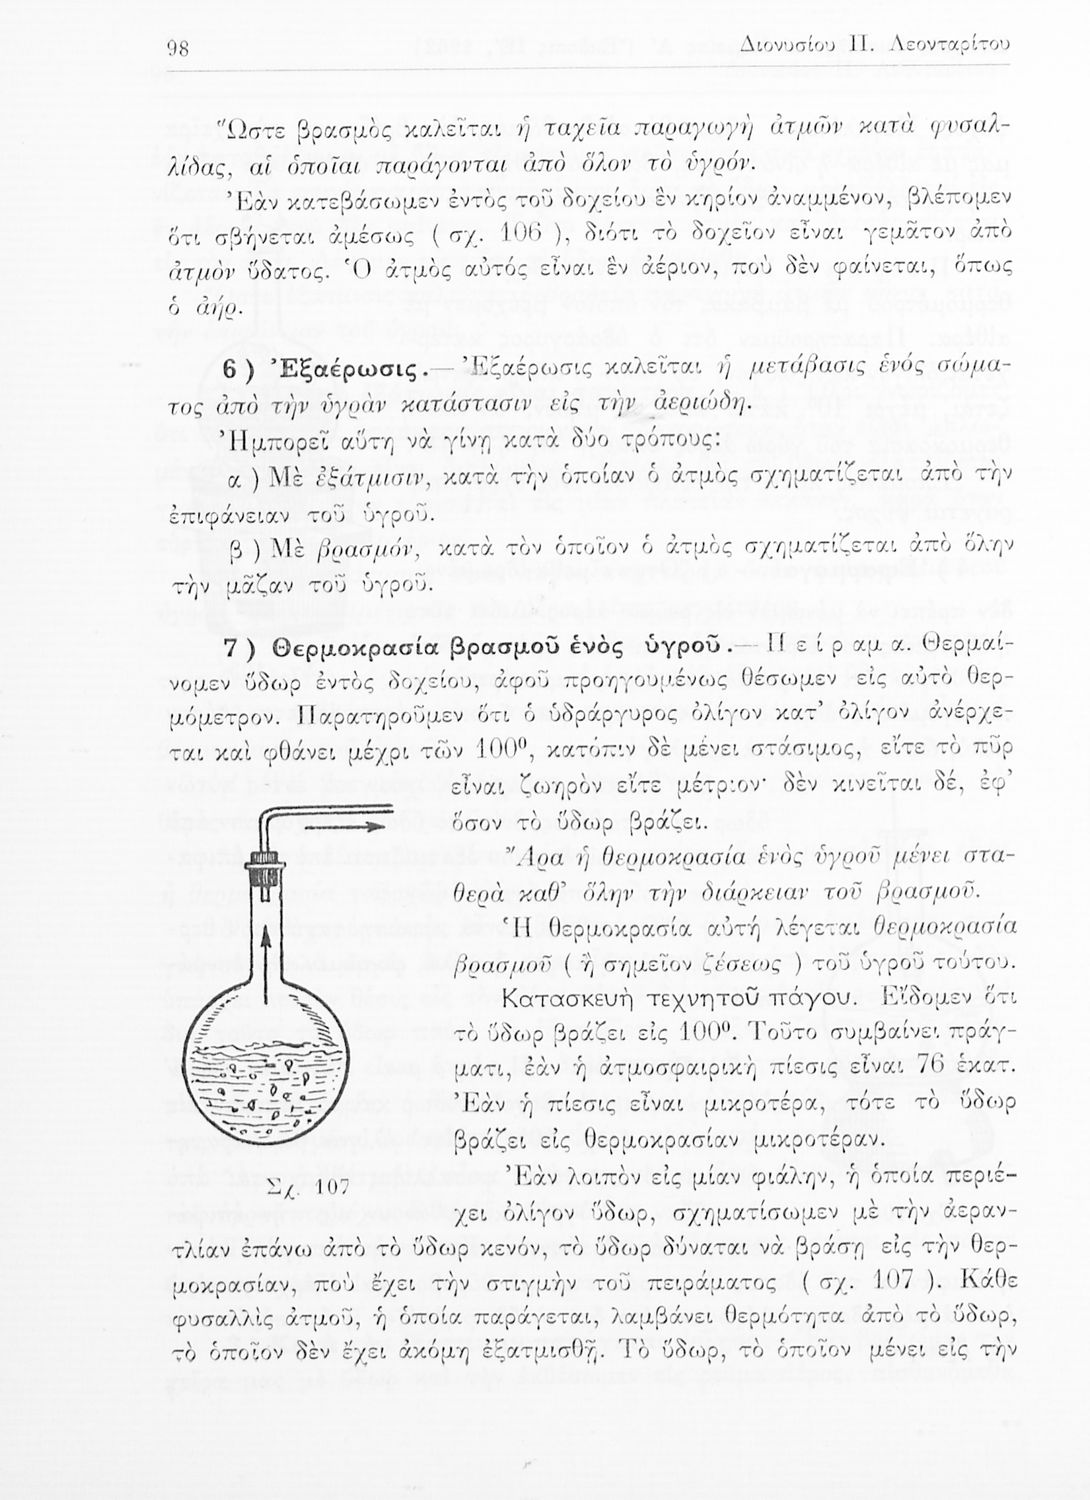 98
Διονυσίου Π. Λεονταρίτου
Ὥστε βρασμὸς καλεῖται ἡ ταχεῖα παραγωγὴ ἀτμῶν κατὰ φυσαλ-
λίδας, αἱ ὁποῖαι παράγονται ἀπὸ ὅλον τὸ ὑγρόν.
Ἐὰν κατεβάσωμεν ἐντὸς τοῦ δοχείου ἓν κηρίον ἀναμμένον, βλέπομεν
ὅτι σβήνεται ἀμέσως ( σχ. 106 ), διότι τὸ δοχεῖον εἶναι γεμᾶτον ἀπὸ
ἀτμὸν ὕδατος. Ὁ ἀτμὸς αὐτός εἶναι ἓν ἀέριον, ποὺ δὲν φαίνεται, ὅπως
ὁ ἀήρ.
6 ) Ἐξαέρωσις.— Ἐξαέρωσις καλεῖται ἡ μετάβασις ἑνός σώμα-
τος ἀπὸ τὴν ὑγρὰν κατάστασιν εἰς τὴν ἀεριώδη.
Ἠμπορεῖ αὕτη νὰ γίνῃ κατὰ δύο τρόπους:
α ) Μὲ ἐξάτμισιν, κατὰ τὴν ὁποίαν ὁ ἀτμὸς σχηματίζεται ἀπὸ τὴν
ἐπιφάνειαν τοῦ ὑγροῦ.
β ) Μὲ βρασμόν, κατὰ τὸν ὁποῖον ὁ ἀτμὸς σχηματίζεται ἀπὸ ὅλην
τὴν μᾶζαν τοῦ ὑγροῦ.
7 ) Θερμοκρασία βρασμοῦ ἑνὸς ὑγροῦ.— Π ε ί ρ αμ α. Θερμαί-
νομεν ὕδωρ ἐντὸς δοχείου, ἀφοῦ προηγουμένως θέσωμεν εἰς αὐτὸ θερ-
μόμετρον. Παρατηροῦμεν ὅτι ὁ ὑδράργυρος ὀλίγον κατ’ ὀλίγον ἀνέρχε-
ται καὶ φθάνει μέχρι τῶν 100⁰, κατόπιν δὲ μένει στάσιμος, εἴτε τὸ πῦρ
εἶναι ζωηρὸν εἴτε μέτριον· δὲν κινεῖται δέ, ἐφ’
ὅσον τὸ ὕδωρ βράζει.
Ἄρα ἡ θερμοκρασία ἑνὸς ὑγροῦ μένει στα-
θερὰ καθ’ ὅλην τὴν διάρκειαν τοῦ βρασμοῦ.
Ἡ θερμοκρασία αὐτή λέγεται θερμοκρασία
βρασμοῦ ( ἢ σημεῖον ζέσεως ) τοῦ ὑγροῦ τούτου.
Κατασκευὴ τεχνητοῦ πάγου. Εἴδομεν ὅτι
τὸ ὕδωρ βράζει εἰς 100⁰. Τοῦτο συμβαίνει πράγ-
ματι, ἐὰν ἡ ἀτμοσφαιρικὴ πίεσις εἶναι 76 ἑκατ.
Ἐὰν ἡ πίεσις εἶναι μικροτέρα, τότε τὸ ὕδωρ
βράζει εἰς θερμοκρασίαν μικροτέραν.
Ἐὰν λοιπὸν εἰς μίαν φιάλην, ἡ ὁποία περιέ-
χει ὀλίγον ὕδωρ, σχηματίσωμεν μὲ τὴν ἀεραν-
τλίαν ἐπάνω ἀπὸ τὸ ὕδωρ κενόν, τὸ ὕδωρ δύναται νὰ βράσῃ εἰς τὴν θερ-
μοκρασίαν, ποὺ ἔχει τὴν στιγμὴν τοῦ πειράματος ( σχ. 107 ). Κάθε
φυσαλλὶς ἀτμοῦ, ἡ ὁποία παράγεται, λαμβάνει θερμότητα ἀπὸ τὸ ὕδωρ,
τὸ ὁποῖον δὲν ἔχει ἀκόμη ἐξατμισθῆ. Τὸ ὕδωρ, τὸ ὁποῖον μένει εἰς τὴν
Σχ. 107